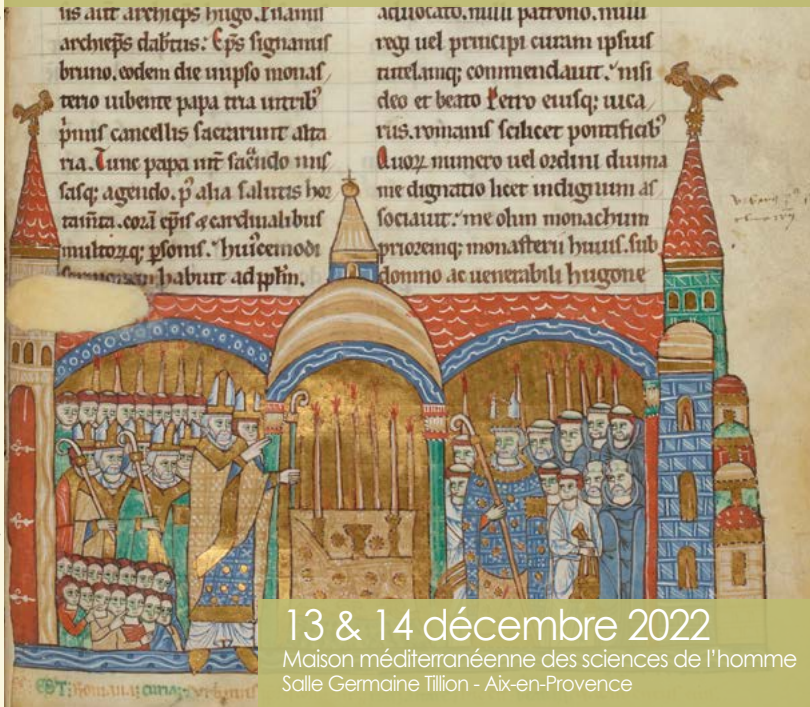 archiep̄s dabtus: Ep̄s signanus
bruno. eodem die in ipso monas
terio iubente papa tria in trib'
primis cancellis sacrarunt alta
ria. Tunc papa int̄ sacrādo mis
sasq; agendo. p̄ alia salutis hor
tam̄ta. corā ep̄is & cardinalibus
multorq; psonis. huicemodi
habuit ad pplm̄.
aduocato. nulli patrono. nulli
regi uel principi curam ipsius
tutelamq; commendauit. nisi
deo et beato Petro eiusq; uica
riis. romanis scilicet pontificib'
Quoꝝ numero uel ordini diuina
me dignatio licet indignum as
sociauit. me olim monachum
prioremq; monasterii huius. sub
domno ac uenerabili hugone
13 & 14 décembre 2022
Maison méditerranéenne des sciences de l'homme
Salle Germaine Tillion - Aix-en-Provence